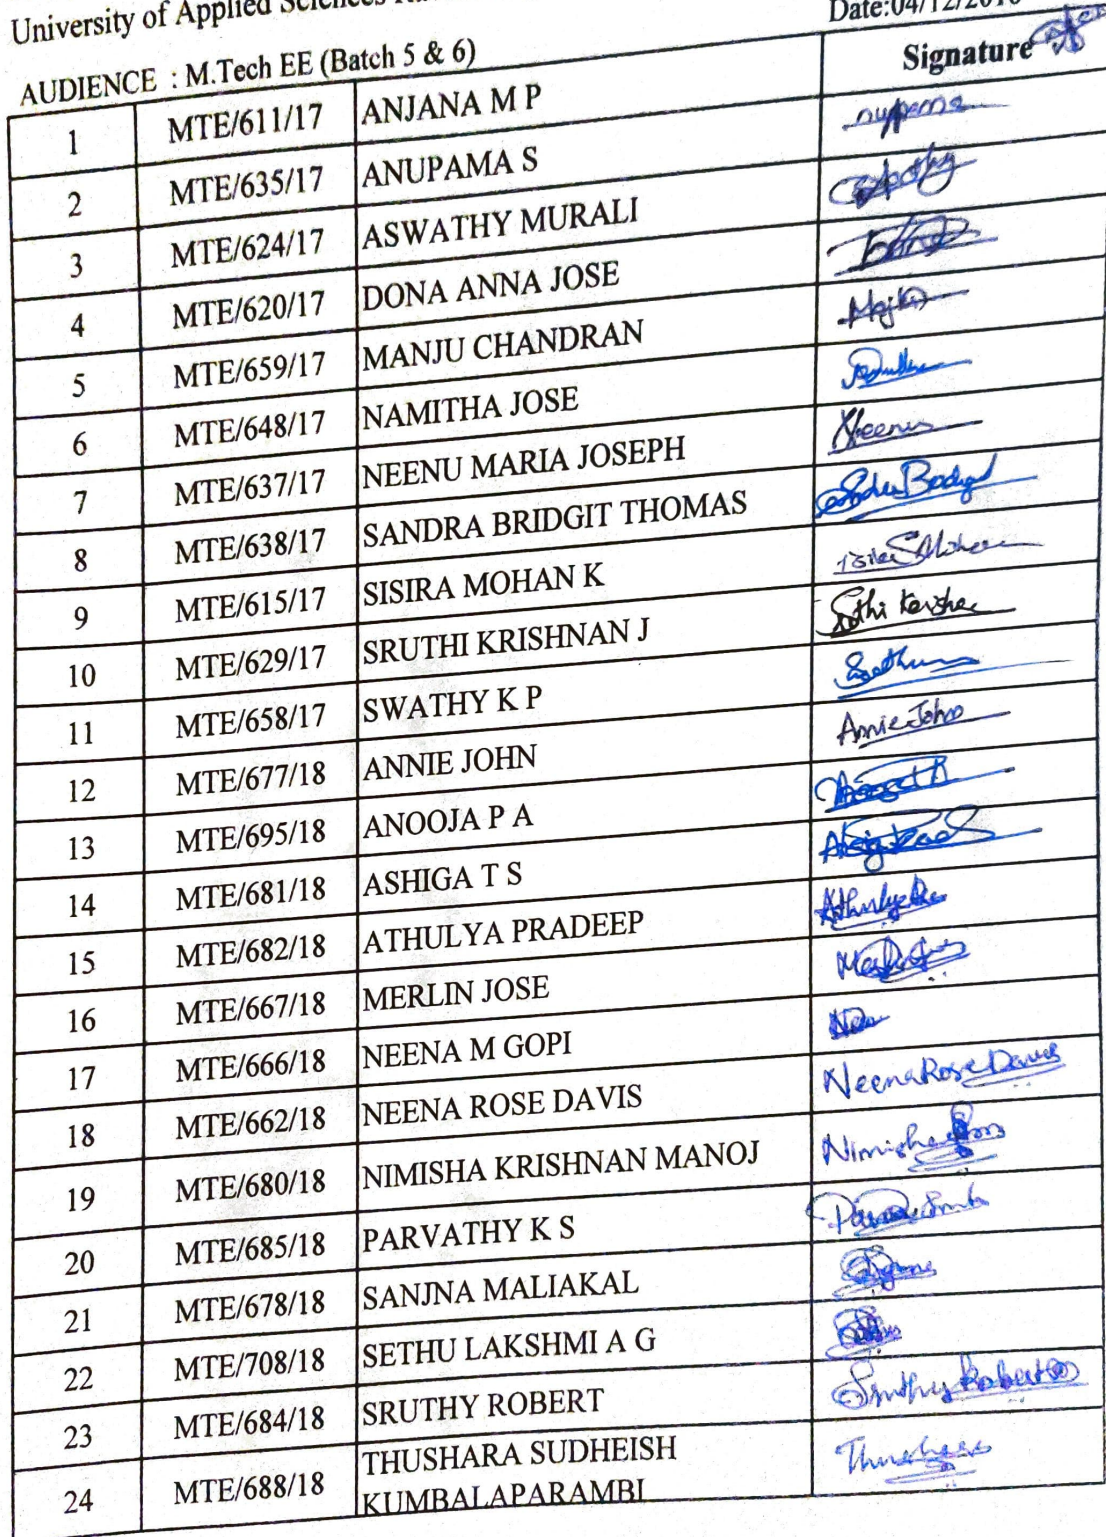 University of Applied Sciences
Date:04/12/2018
AUDIENCE : M.Tech EE (Batch 5 & 6)
Signature
1 MTE/611/17 ANJANA M P
2 MTE/635/17 ANUPAMA S
3 MTE/624/17 ASWATHY MURALI
4 MTE/620/17 DONA ANNA JOSE
5 MTE/659/17 MANJU CHANDRAN
6 MTE/648/17 NAMITHA JOSE
7 MTE/637/17 NEENU MARIA JOSEPH
8 MTE/638/17 SANDRA BRIDGIT THOMAS
9 MTE/615/17 SISIRA MOHAN K
10 MTE/629/17 SRUTHI KRISHNAN J
11 MTE/658/17 SWATHY K P
12 MTE/677/18 ANNIE JOHN Annie John
13 MTE/695/18 ANOOJA P A
14 MTE/681/18 ASHIGA T S
15 MTE/682/18 ATHULYA PRADEEP
16 MTE/667/18 MERLIN JOSE
17 MTE/666/18 NEENA M GOPI
18 MTE/662/18 NEENA ROSE DAVIS Neena Rose Davis
19 MTE/680/18 NIMISHA KRISHNAN MANOJ
20 MTE/685/18 PARVATHY K S
21 MTE/678/18 SANJNA MALIAKAL
22 MTE/708/18 SETHU LAKSHMI A G
23 MTE/684/18 SRUTHY ROBERT
24 MTE/688/18 THUSHARA SUDHEISH
KUMBALAPARAMBI